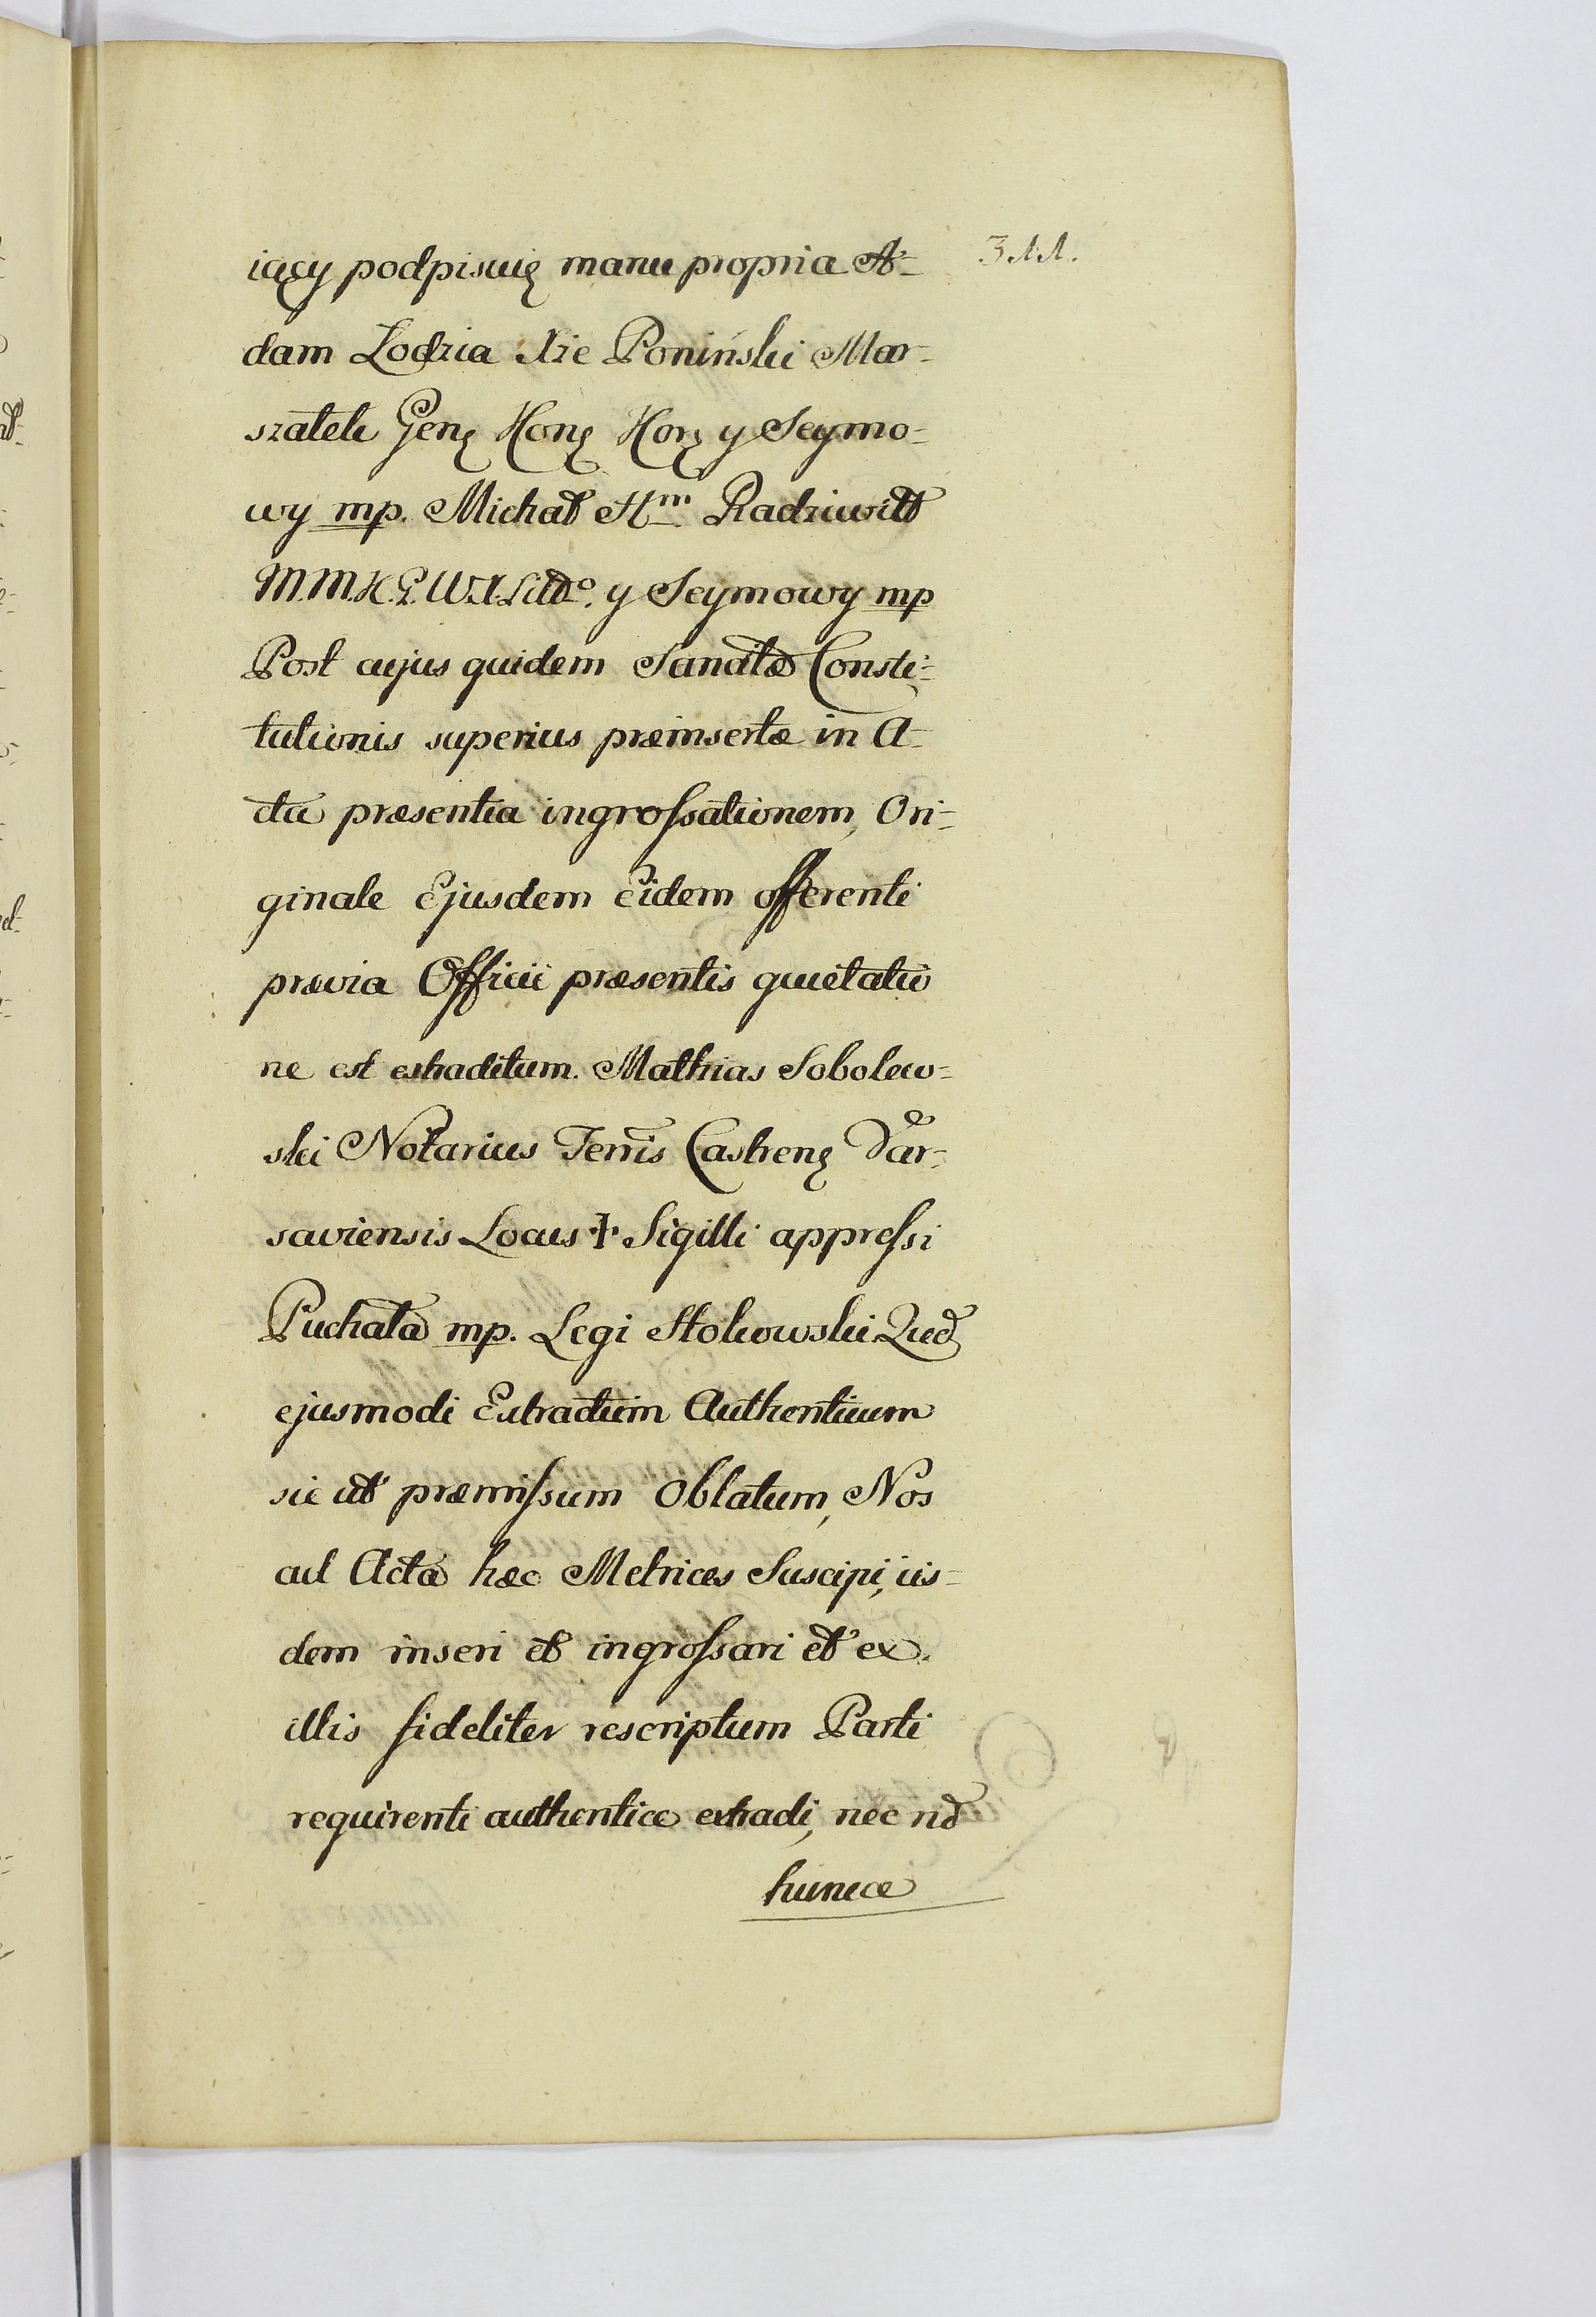 iący podpisuię manu propria A-
dam Lodzia Xże Poniński Mar-
szałek Genę Konę Korę y Seymo-
wy mp. Michał Hm Radziwiłł
M.M.K.G.W.X.Litto. y Seymowy mp
Post cujus quidem Sancitæ Consti-
tutionis superius præinsertæ in A-
cta præsentia ingrossationem, Ori-
ginale Ejusdem Eidem offerenti
prævia Officii præsentis quietatio
ne est extraditum. Mathias Sobolew-
ski Notarius Terris Castrenę Var-
saviensis Locus ☩ Sigilli appressi
Puchała mp. Legi Stokowski Qued
ejusmodi Extractum Authenticum
sic ut præmissum Oblatum, Nos
ad Acta hæc Metrices Suscipi, iis-
dem inseri et ingrossari et ex
illis fideliter rescriptum Parti
requirenti authentice extradi, nec nō
hunece